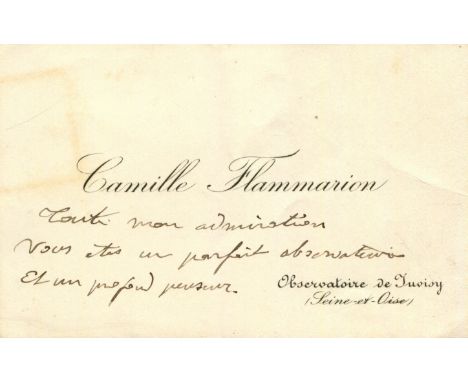 Camille Flammarion
Toute mon admiration
Vous êtes un parfait observateur
Et un profond penseur.
Observatoire de Juvisy
(Seine-et-Oise)